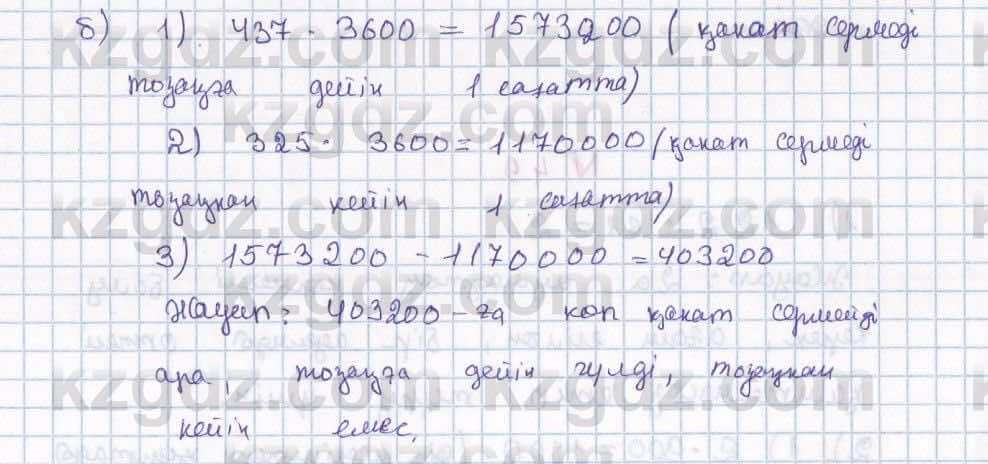 б) 1) 437 · 3600 = 1573200 (қанат сермеді
тозаңға дейін 1 сағатта)
2) 325 · 3600 = 1170000 (қанат сермеді
тозаңнан кейін 1 сағатта)
3) 1573200 - 1170000 = 403200
Жауап: 403200-ға көп қанат сермейді
ара, тозаңға дейін гүлді, тозаңнан
кейін емес.
kzgdz.com